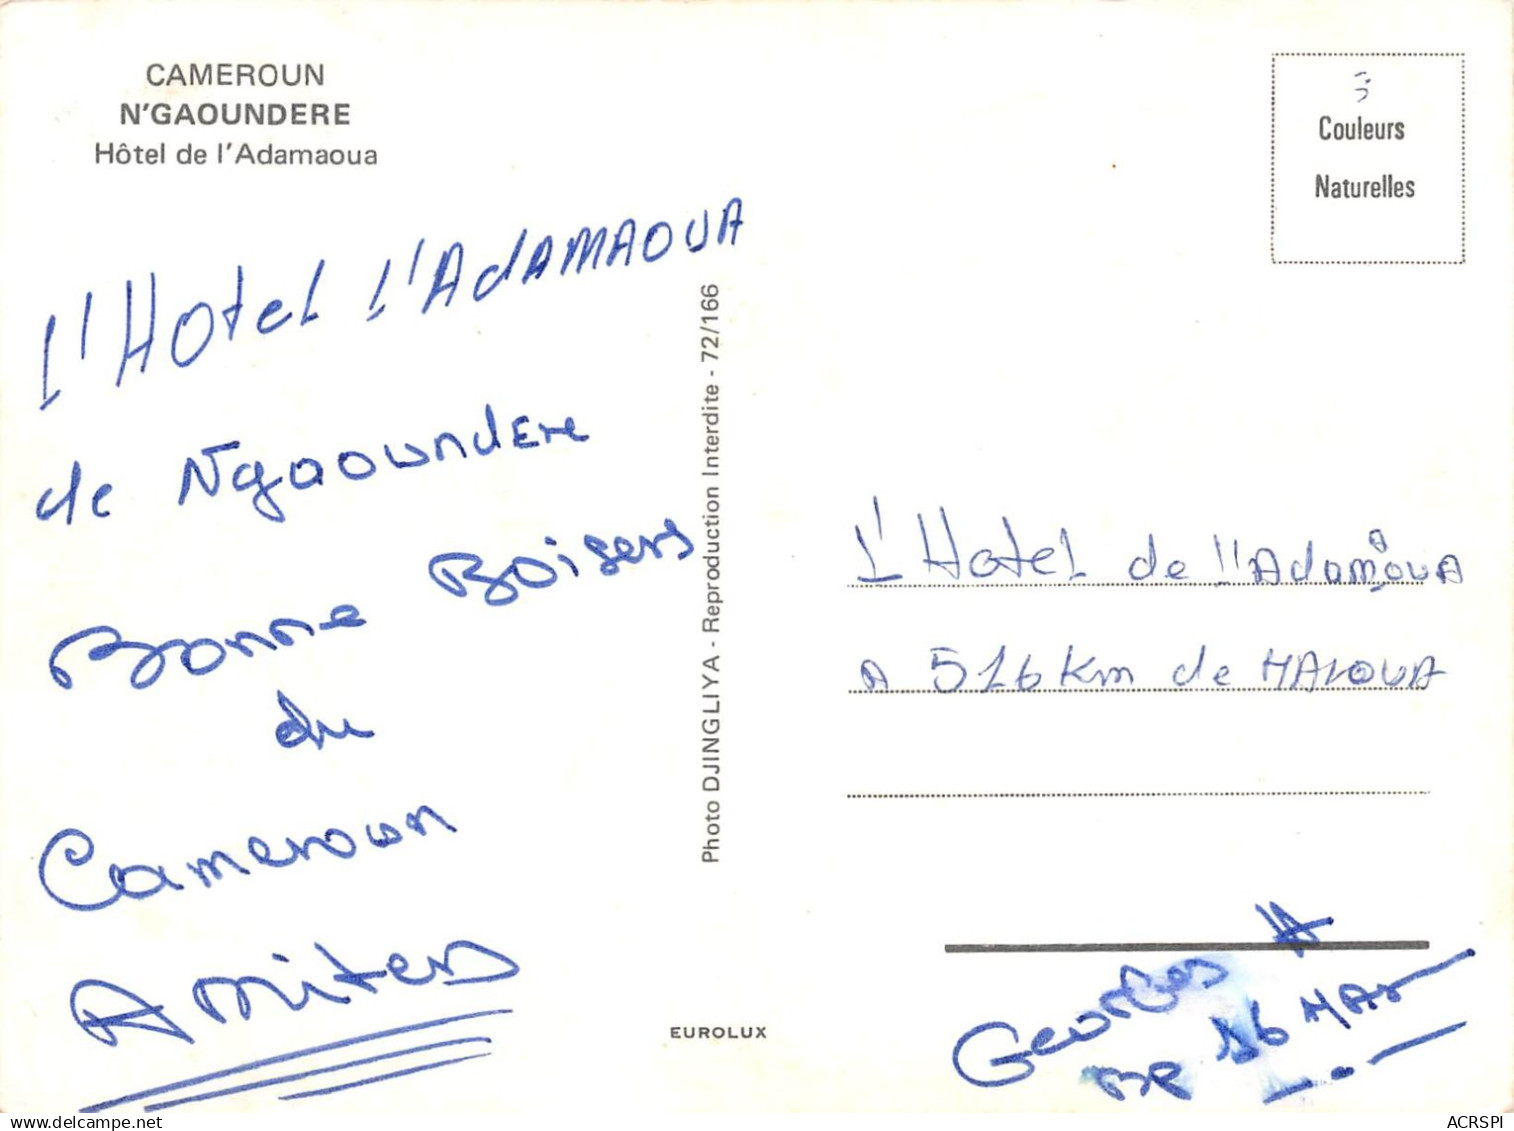 CAMEROUN
N'GAOUNDERE
Hôtel de l'Adamaoua
Couleurs
Naturelles
L'Hotel l'AdAMAOUA
de Ngaoundere
Bonne Boisers
du
Cameroun
Amiters
Photo DJINGLIYA - Reproduction Interdite - 72/166
L'Hotel de l'AdamaouA
A 516 Km de
EUROLUX
Georges
ACRSPI